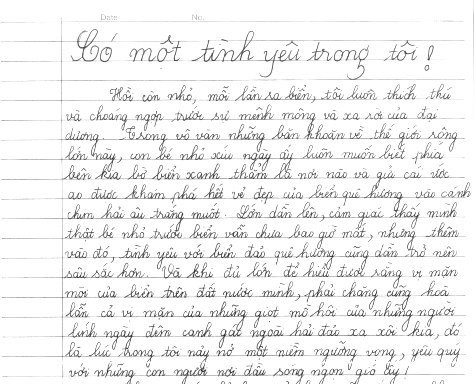 Date: No:
Có một tình yêu trong tôi!
Hồi còn nhỏ, mỗi lần ra biển, tôi luôn thích thú
và choáng ngợp trước sự mênh mông và xa xôi của đại
dương. Trong vô vàn những băn khoăn về thế giới sông
lớn này, con bé nhỏ xíu ngày ấy luôn muốn biết phía
bên kia bờ biển xanh thẳm là nơi nào và giữ cái ước
ao được khám phá hết vẻ đẹp của biển quê hương vào cánh
chim hải âu trắng muốt. Lớn dần lên, cảm giác thấy mình
thật bé nhỏ trước biển vẫn chưa bao giờ mất, nhưng thêm
vào đó, tình yêu với biển đảo quê hương cũng dần trở nên
sâu sắc hơn. Và khi đủ lớn để hiểu được rằng vị mặn
mòi của biển trên đất nước mình, phải chăng cũng hoà
lẫn cả vị mặn của những giọt mồ hôi của những người
lính ngày đêm canh gác ngoài hải đảo xa xôi kia, đó
là lúc trong tôi nảy nở một niềm ngưỡng vọng, yêu quý
với những con người nơi đầu sóng ngọn gió ấy!